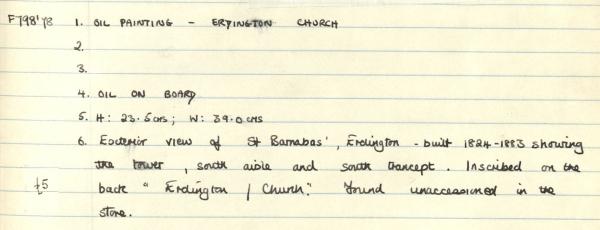 F798'78 1. OIL PAINTING - ERDINGTON CHURCH
2.
3.
4. OIL ON BOARD
5. H: 23.5cms; W: 39.0cms
6. Exterior view of St Barnabas', Erdington - built 1824-1883 showing
the tower, south aisle and south trancept. Inscribed on the
£5 back "Erdington / Church." Found unaccessioned in the
store.